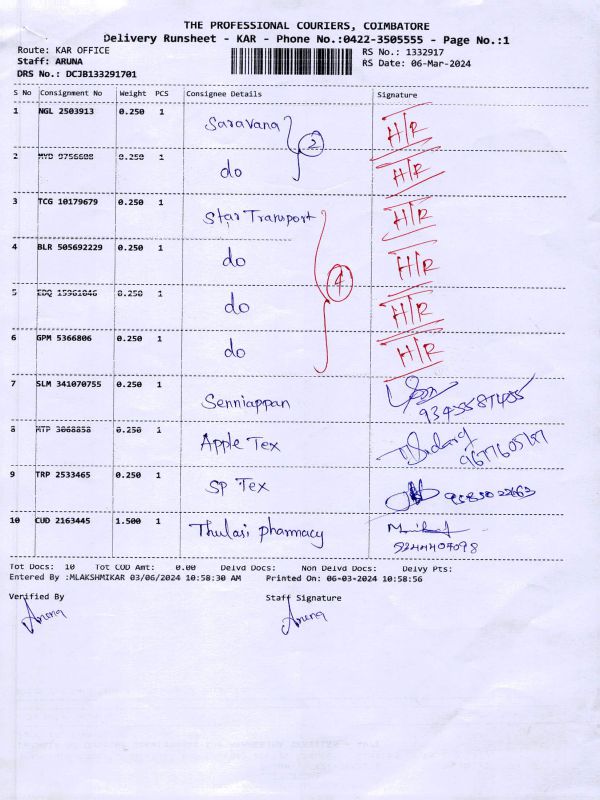 THE PROFESSIONAL COURIERS, COIMBATORE
Delivery Runsheet - KAR - Phone No.:0422-3505555 - Page No.:1
Route: KAR OFFICE RS No.: 1332917
Staff: ARUNA RS Date: 06-Mar-2024
DRS No.: DCJB133291701
S No Consignment No Weight PCS Consignee Details Signature
1 NGL 2503913 0.250 1 Saravana H/R
2
2 0.250 1 do H/R
3 TCG 10179679 0.250 1 Star Transport H/R
4 BLR 505692229 0.250 1 do H/R
4
5 0.250 1 do H/R
6 GPM 5366806 0.250 1 do H/R
7 SLM 341070755 0.250 1 Senniappan
8 MTP 3068858 0.250 1 Apple Tex
9 TRP 2533465 0.250 1 SP Tex
10 CUD 2163445 1.500 1 Thulasi pharmacy
Tot Docs: 10 Tot COD Amt: 0.00 Delvd Docs: Non Delvd Docs: Delvy Pts:
Entered By :MLAKSHMIKAR 03/06/2024 10:58:30 AM Printed On: 06-03-2024 10:58:56
Verified By Staff Signature
Aruna Aruna